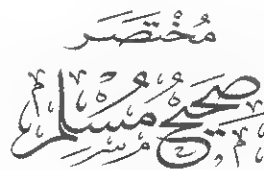 مُخْتَصَر
صَحِيحُ مُسْلِمٍ